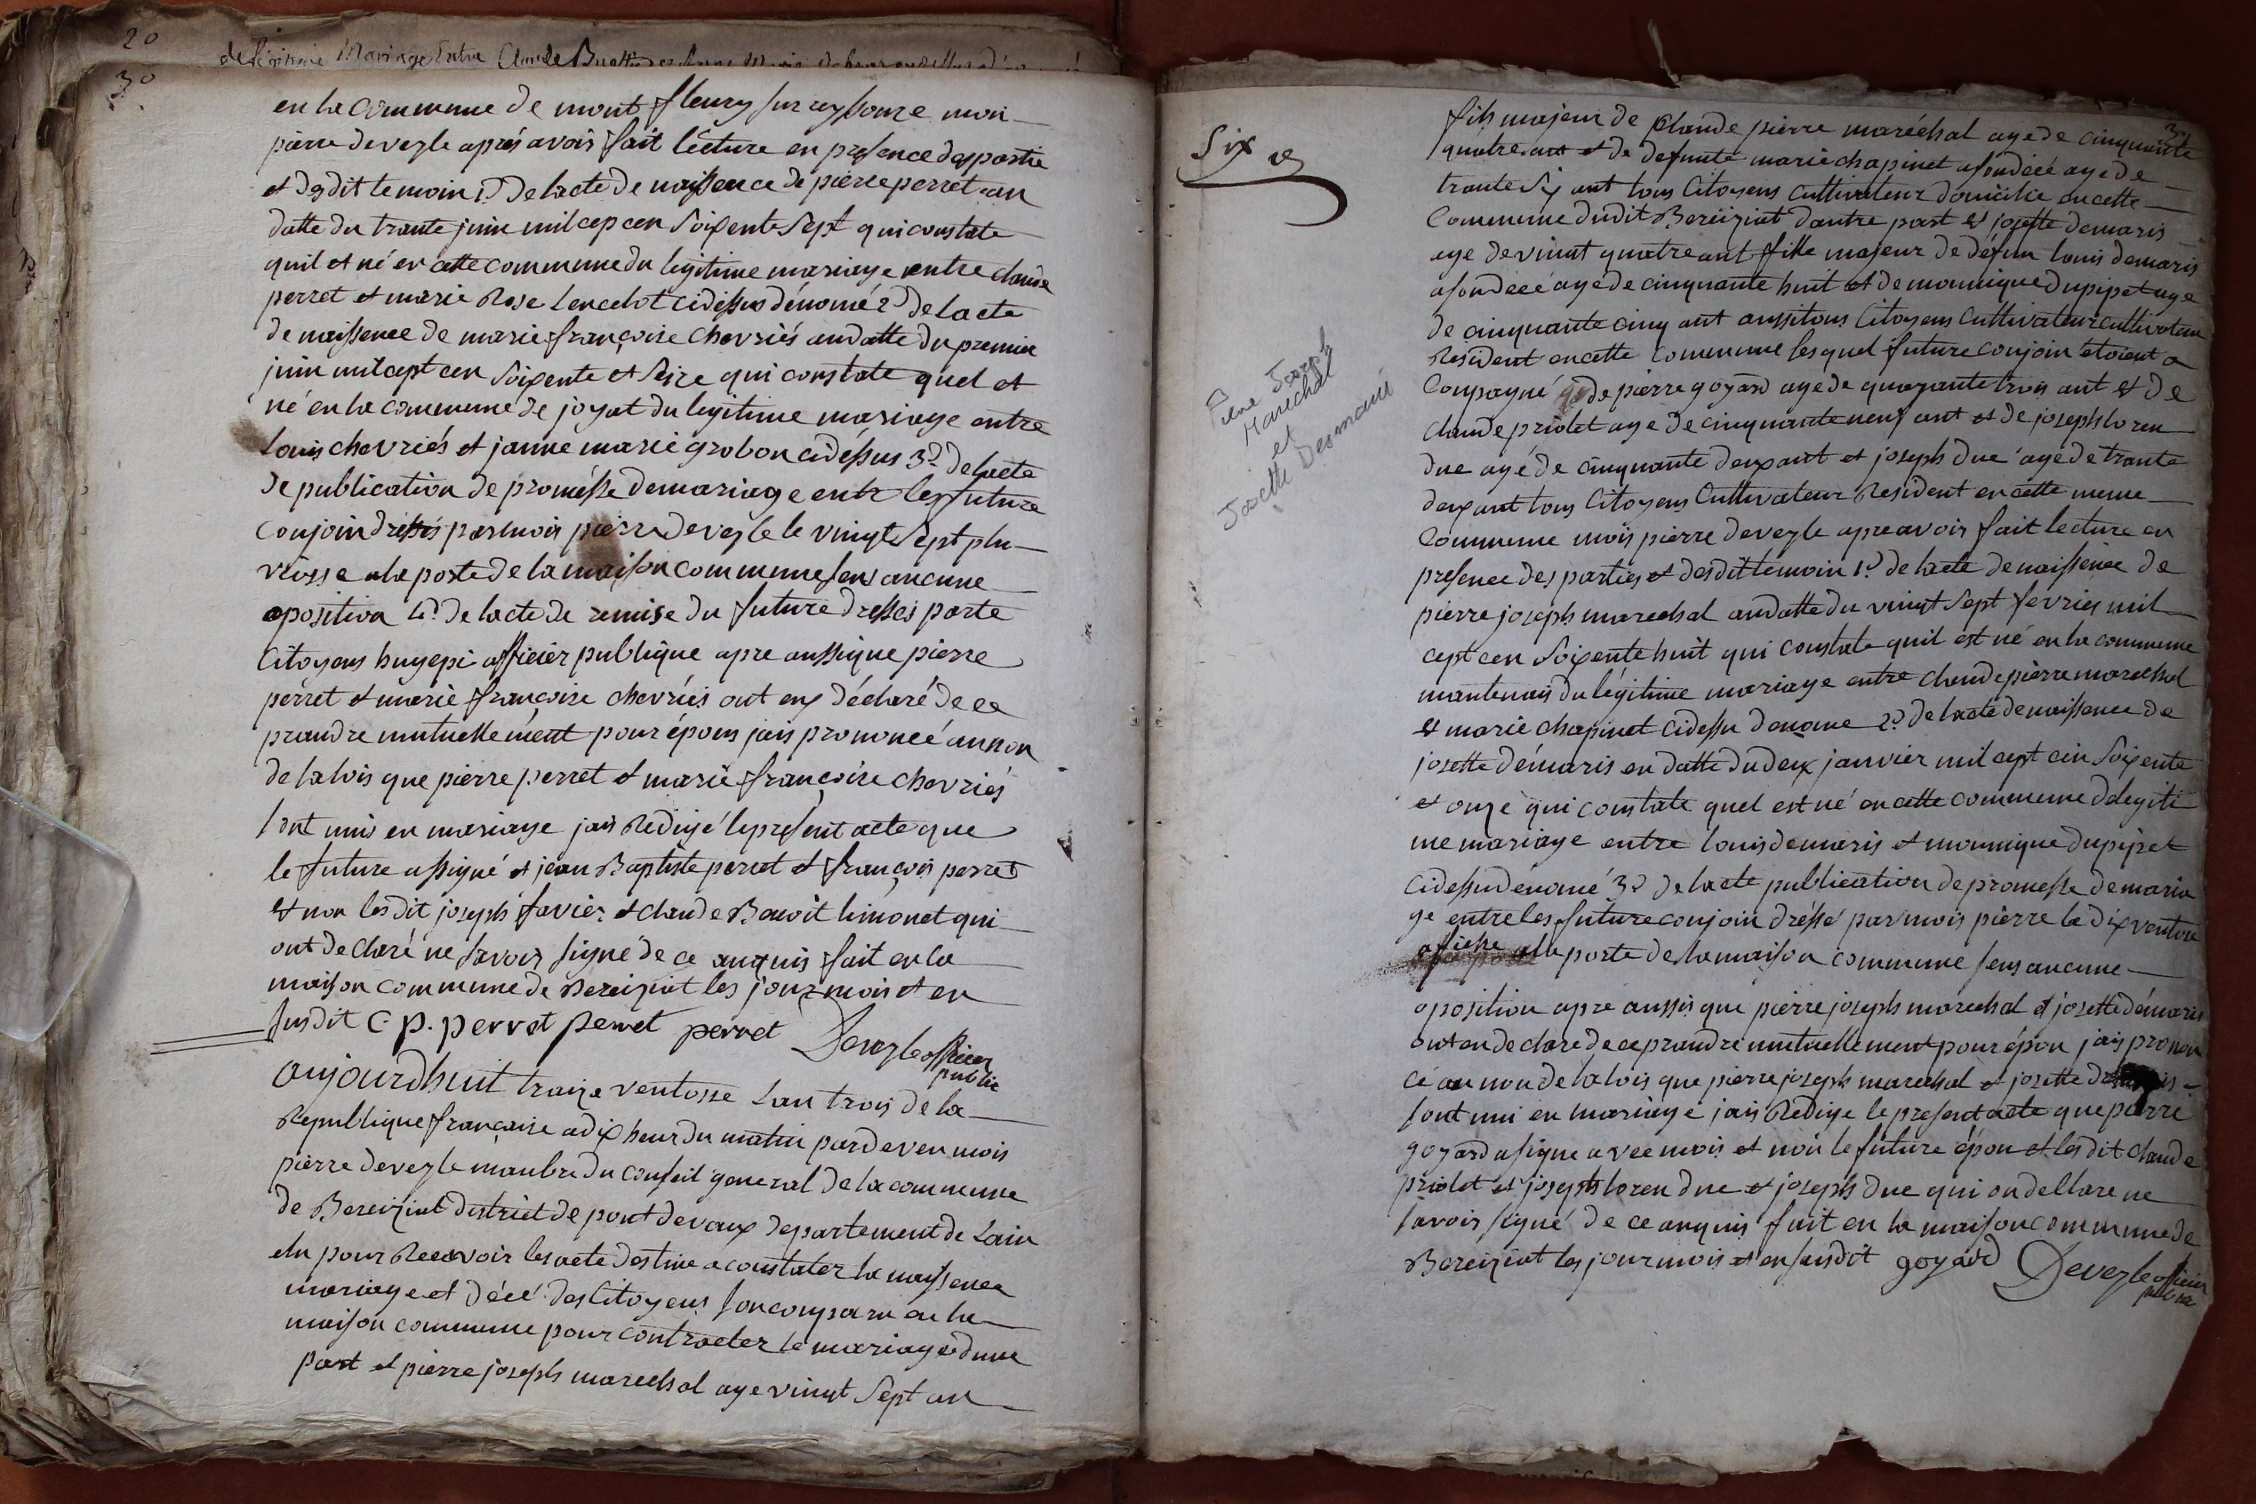 20
de légitime Mariage Entre Claude
3º
en la commune de mont fleury sur reyssouze moi
pierre devezle aprés avoir fait lécture en presence des partie
et desdit temoin 1º de lacte de naissence de pierre perret an
datte du trante juin mil cep cen soixente sept qui constate
quil et né en cette commune du legitime mariage entre claude
perret et marie Rose lencelot cidessus dénomé 2º de lacte
de naissence de marie françoise chevriés an datte du premier
juin mil cept cen soixente et seize qui constate quel et
né en la commune de jayat du legitime mariage entre
louis chevriés et janne marie grobon cidessus 3º de lacte
de publication de promésse de mariage entre les future
conjoin dréssés par mois pierre devezle le vingt sept plu
viosse a la porte de la maison commune sens aucune
oposition 4º de lacte de remise du future dressés parte
Citoyens huyepi officier publique apre aussi que pierre
perret et marie françoise chevriés ont eux déclaré de ce
prandre mutuellement pour époux jais prononcé au non
de la lois que pierre perret et marie françoise chevriés
sont unis en mariage jais Redigé le présent acte que
le future a signé et jean Baptiste perret et françois perret
et non lesdit joseph favier et claude Benoit limonet qui
ont déclaré ne savoir signé de ce anquis fait en la
maison commune de Bereiziat les jour mois et en
susdit C p. perret perret perret Devezle officier
public
aujourdhuit traize ventosse Lan trois de la
Republique française a dix heur du matin par deven mois
pierre devezle manbre du conseil general de la commune
de Bereiziat district de pont devaux departement de Lain
elu pour Recevoir les acte destine a constater la naissence
mariage et décé des Citoyens son comparu en la
maison commune pour contracter le mariage dune
part et pierre joseph marechal age vingt sept an
Six e
Pierre Joseph
Maréchal
et
Josette Desmaris
fils majeur de Claude pierre maréchal age de cinquante
quatre ant et de defunte marie chapinet a son décé age de
trante six ant tous Citoyens cultivateur domicilie en cette
Commune dudit Bereiziat dautre part et josette demaris
age de vingt quatre ant fille majeur de défun louis demaris
a son décé age de cinquante huit et de mounique dupipet age
de cinquante cinq ant aussi tous Citoyens cultivateur cultivateur
Resident en cette commune lesquel future conjoin etoient a
Compagné de pierre goyard age de quarante trois ant et de
claude priolet age de cinquante neuf ant et de joseph loren
due agé de cinquante deux ant et joseph due age de trante
deux ant tous Citoyens cultivateur Resident en cette meme
Commune mois pierre devezle apre avoir fait lecture en
presence des parties et desdit temoin 1º de lacte de naissence de
pierre joseph marechal an datte du vingt sept fevrier mil
cept cen soixente huit qui constate quil est né en la commune
mantenais du légitime mariage entre claude pierre marechal
et marie chapinet cidessu denome 2º de lacte de naissence de
josette démaris en datte du deux janvier mil cept cen soixente
et onze qui constate quel est né en cette commune du legiti
me mariage entre louis demaris et mounique dupipet
cidessu dénomé 3º de lacte publication de promesse de maria
ge entre les future conjoin dréssé par mois pierre le dix ventose
afiche a la porte de la maison commune sens aucune
oposition apre aussi que pierre joseph marechal et josette démaris
ont en declare de ce prandre mutuellement pour épou jais pronon
cé au non de la lois que pierre joseph marechal et josette demaris
sont uni en mariage jais Redige le present acte que pierre
goyard a signe avec mois et non le future épou et lesdit claude
priolet et joseph loren due et joseph due qui on dellare ne
savoir signé de ce anquis fait en la maison commune de
Bereiziat les jour mois et en susdit goyard Devezle officier
public